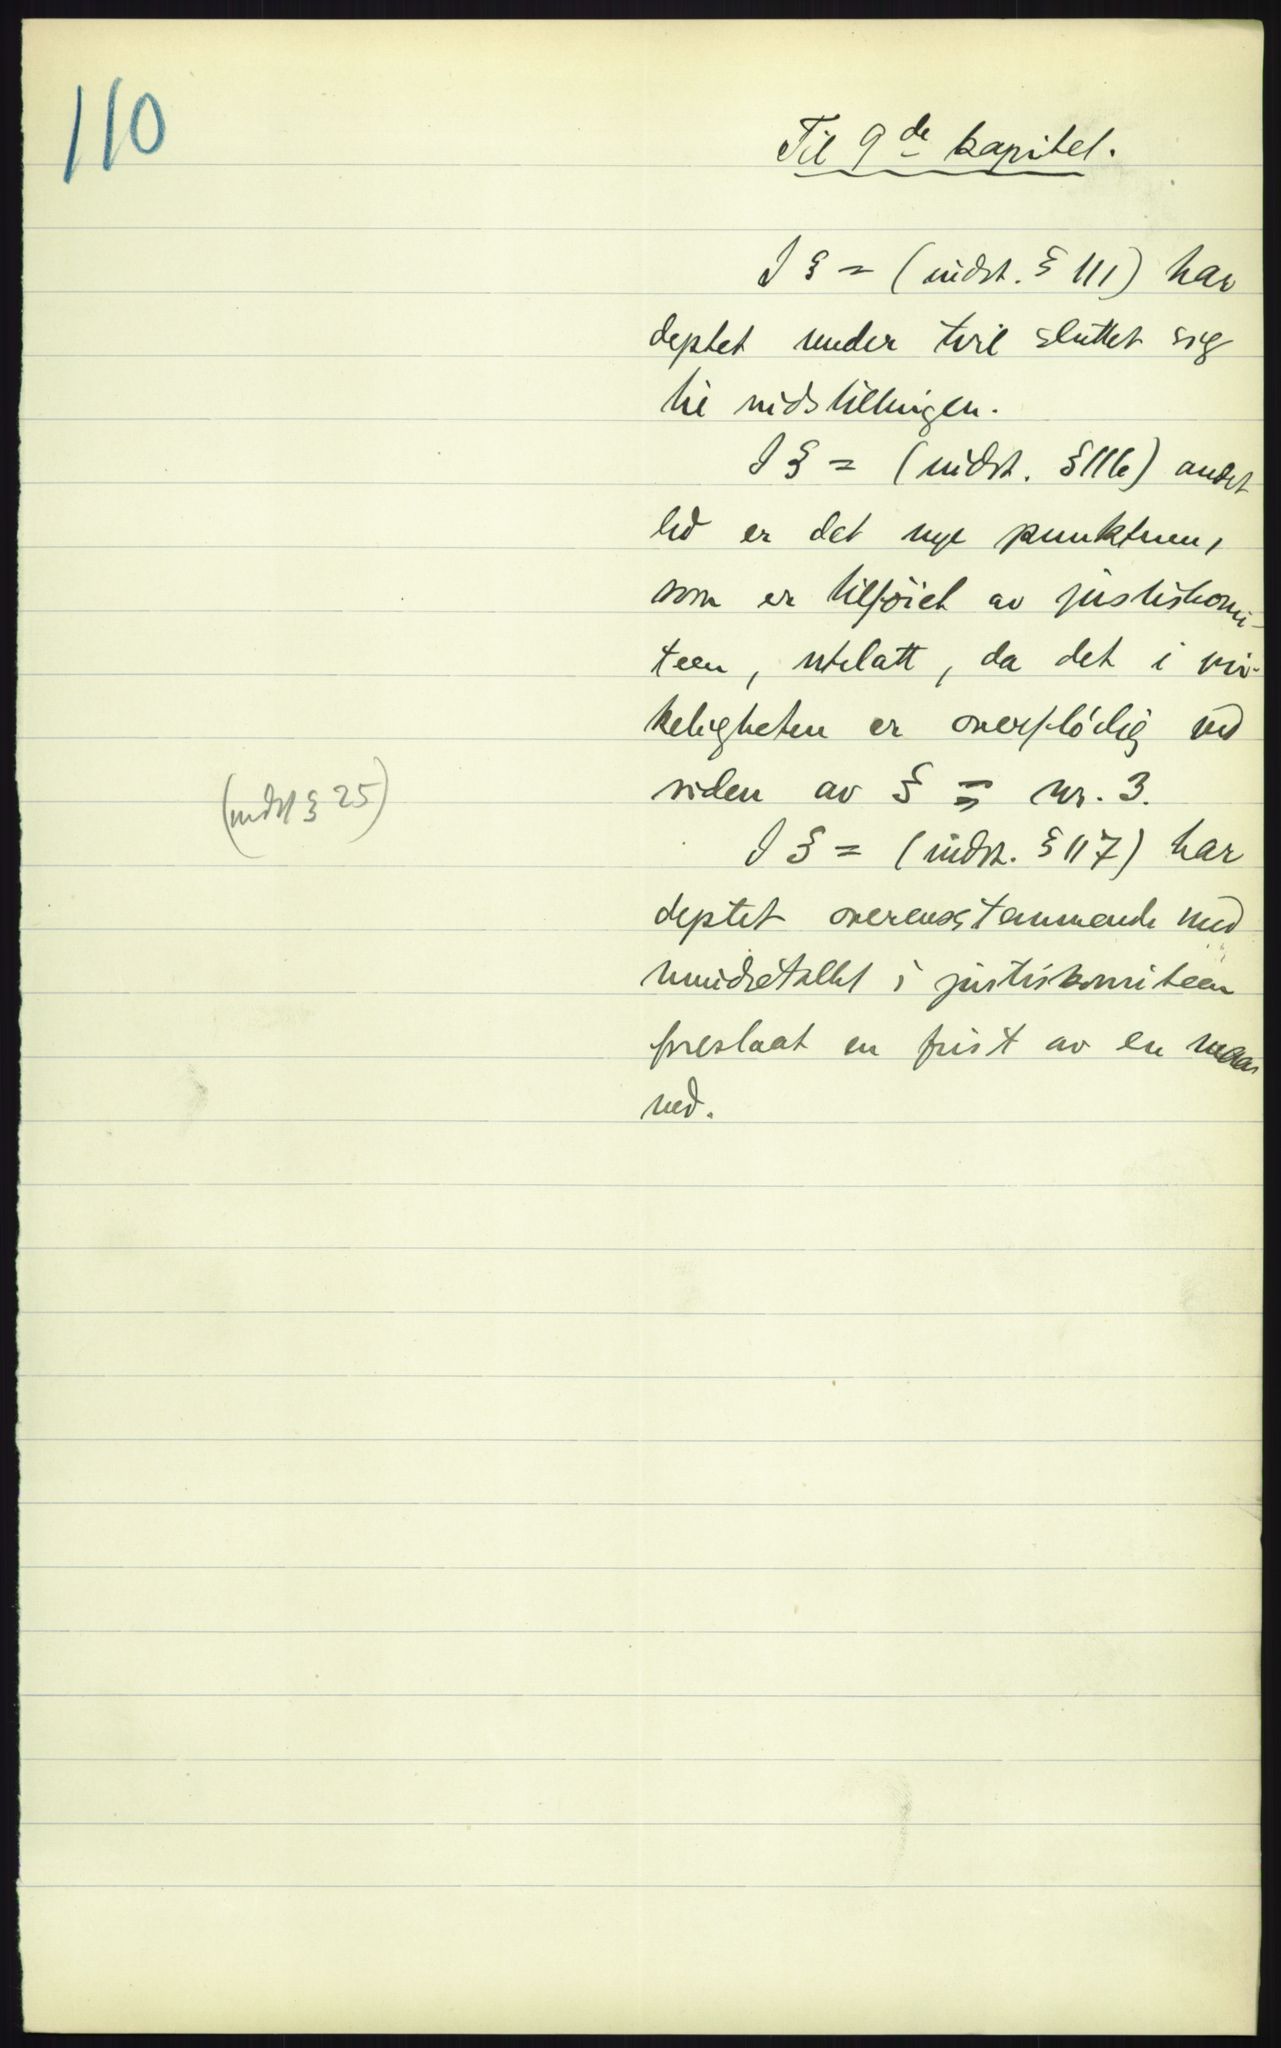 110
Til 9de kapitel.
I § = (indst. § 111) har
deptet under tvil sluttet sig
til indstillingen.
I § = (indst. § 116) andet
led er det nye punktum,
som er tilføiet av justiskomi-
teen, utelatt, da det i vir-
keligheten er overflødig ved
siden av § = nr. 3.
(indst § 25)
I § = (indst. § 117) har
deptet overensstemmende med
mindretallet i justiskomiteen
foreslaat en frist av en maa-
ned.